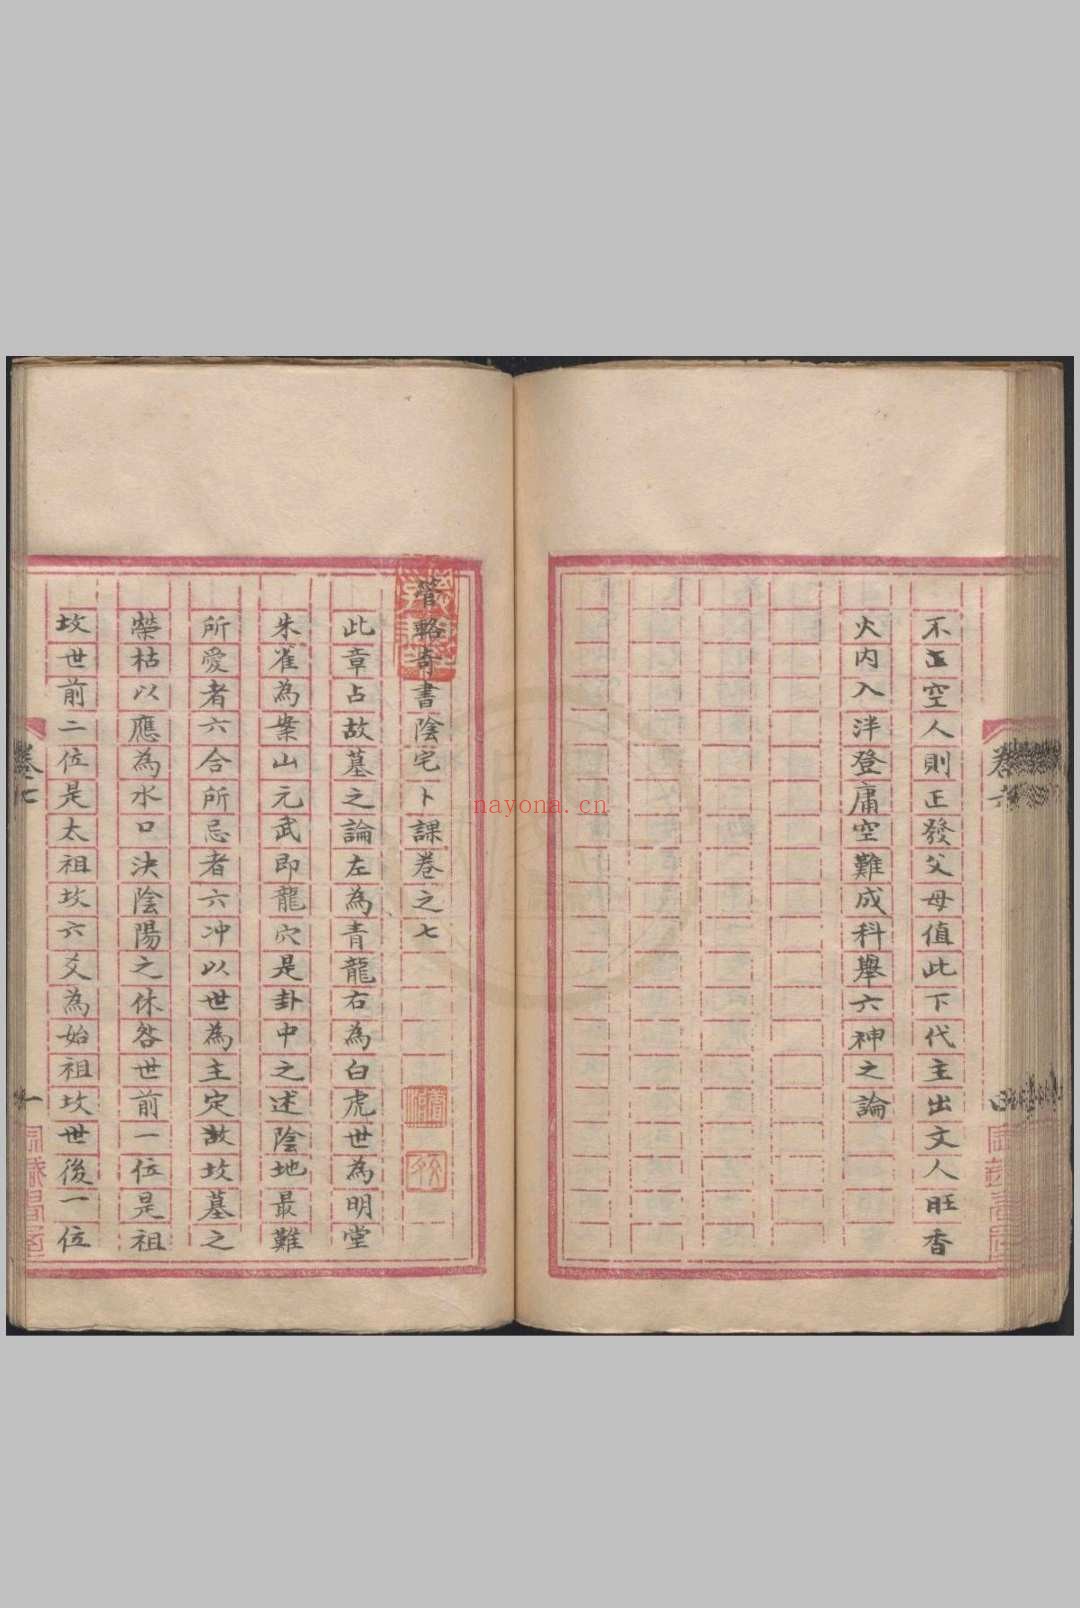 不正空人則正發父母值此下代主出文人旺香
火內入泮登庸空難成科舉六神之論
卷六
四
管輅奇書陰宅卜課卷之七
此章占故墓之論左為青龍右為白虎世為明堂
朱雀為案山元武即龍穴是卦中之述陰地最難
所愛者六合所忌者六冲以世為主定故坟墓之
榮枯以應為水口決陰陽之休咎世前一位是祖
坟世前二位是太祖坟六爻為始祖坟世後一位
卷七
一
nayona.cn